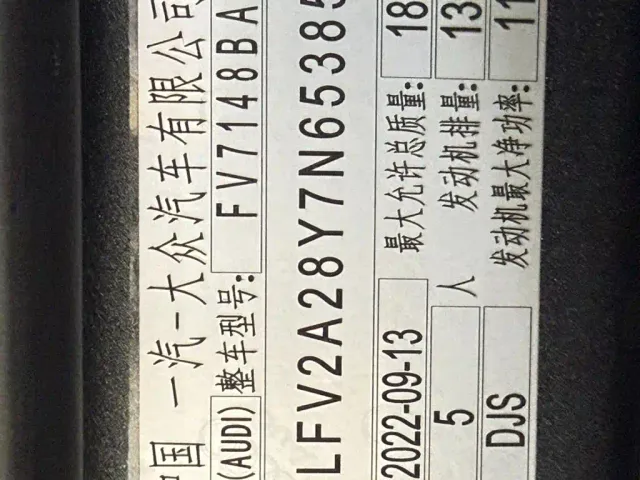 中国 一汽-大众汽车有限公司
(AUDI) 整车型号: FV7148BA
LFV2A28Y7N65385
2022-09-13 最大允许总质量: 18
5 人 发动机排量: 13
DJS 发动机最大净功率: 11